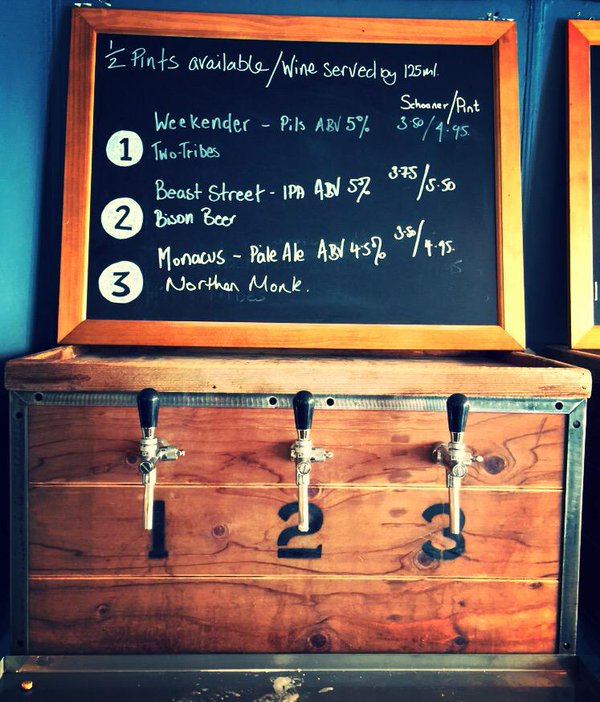 ½ Pints available/Wine served by 125ml.
Schooner/Pint
1 Weekender - Pils ABV 5% 3.50/4.95
Two-Tribes
2 Beast Street - IPA ABV 5% 3.75/5.50
Bison Beer
3 Monacus - Pale Ale ABV 4.5% 3.50/4.95.
Northen Monk.
1 2 3